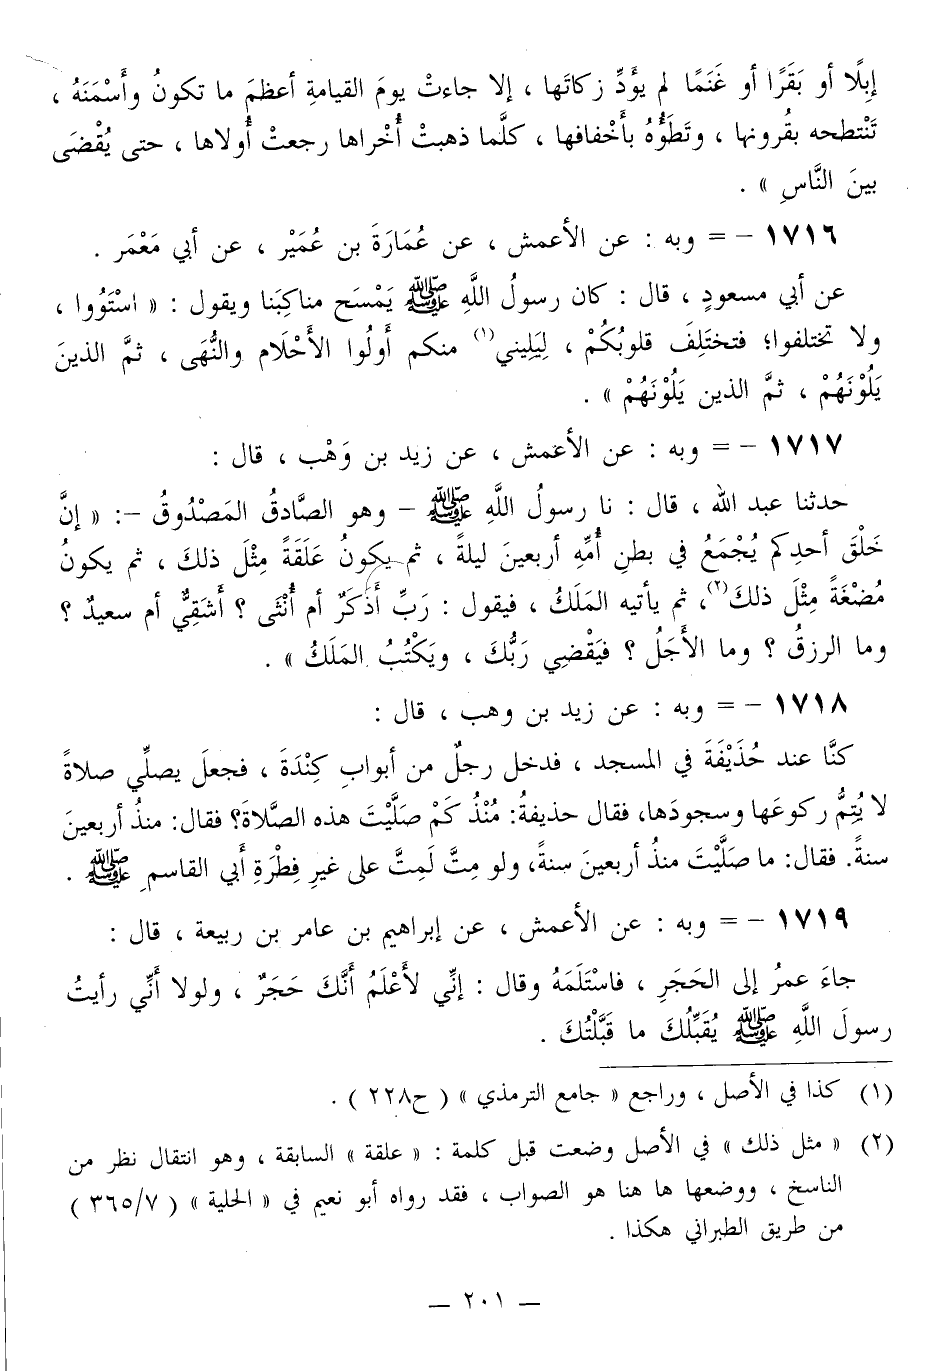 إبلًا أو بَقَرًا أو غَنَمًا لم يؤَدِّ زكاتَها ، إلا جاءتْ يومَ القيامةِ أعظمَ ما تكونُ وأَسْمَنَهُ ،
تَنْتطحه بقُرونها ، وتَطَؤُهُ بأَخْفافها ، كلَّما ذهبتْ أُخْراها رجعتْ أُولاها ، حتى يُقْضَى
بينَ النَّاسِ » .
١٧١٦ – = وبه : عن الأعمش ، عن عُمَارَةَ بن عُمَيْر ، عن أبي مَعْمَر .
عن أبي مسعودٍ ، قال : كان رسولُ اللَّهِ ﷺ يَمْسَح مناكِبَنا ويقول : « اسْتَوُوا ،
ولا تختلفوا؛ فتختَلِفَ قلوبُكُمْ ، لِيَلِيني(١) منكم أُولُوا الأَحْلَام والنُّهَى ، ثمَّ الذينَ
يَلُوْنَهُمْ ، ثمَّ الذين يَلُوْنَهُمْ » .
١٧١٧ – = وبه : عن الأعمش ، عن زيد بن وَهْب ، قال :
حدثنا عبد الله ، قال : نا رسولُ اللَّهِ ﷺ – وهو الصَّادقُ المَصْدُوقُ –: « إنَّ
خَلْقَ أحدِكم يُجْمَعُ في بطنِ أُمِّهِ أربعينَ ليلةً ، ثم يكونُ عَلَقَةً مِثْلَ ذلكَ ، ثم يكون
مُضْغَةً مِثْلَ ذلكَ(٢)، ثم يأتيه المَلَكُ ، فيقول : رَبِّ أذَكَرٌ أم أُنْثَى ؟ أَشَقِيٌّ أم سعيدٌ ؟
وما الرزقُ ؟ وما الأَجَلُ ؟ فيَقْضِي رَبُّكَ ، ويَكْتُبُ المَلَكُ » .
١٧١٨ – = وبه : عن زيد بن وهب ، قال :
كنَّا عند حُذَيْفَةَ في المسجد ، فدخل رجلٌ من أبوابِ كِنْدَةَ ، فجعلَ يصلِّي صلاةً
لا يُتِمُّ ركوعَها وسجودَها، فقال حذيفةُ: مُنْذُ كَمْ صَلَّيْتَ هذه الصَّلاةَ؟ فقال: منذُ أربعينَ
سنةً. فقال: ما صَلَّيْتَ منذُ أربعينَ سنةً، ولو مِتَّ لَمِتَّ على غيرِ فِطْرَةِ أبي القاسمِ ﷺ .
١٧١٩ – = وبه : عن الأعمش ، عن إبراهيم بن عامر بن ربيعة ، قال :
جاءَ عمرُ إلى الحَجَرِ ، فاسْتَلَمَهُ وقال : إنِّي لأَعْلَمُ أَنَّكَ حَجَرٌ ، ولولا أنِّي رأيتُ
رسولَ اللَّهِ ﷺ يُقَبِّلُكَ ما قَبَّلْتُكَ .
(١) كذا في الأصل ، وراجع « جامع الترمذي » ( ح٢٢٨ ) .
(٢) « مثل ذلك » في الأصل وضعت قبل كلمة : « علقة » السابقة ، وهو انتقال نظر من
الناسخ ، ووضعها ها هنا هو الصواب ، فقد رواه أبو نعيم في « الحلية » ( ٣٦٥/٧ )
من طريق الطبراني هكذا .
– ٢٠١ –